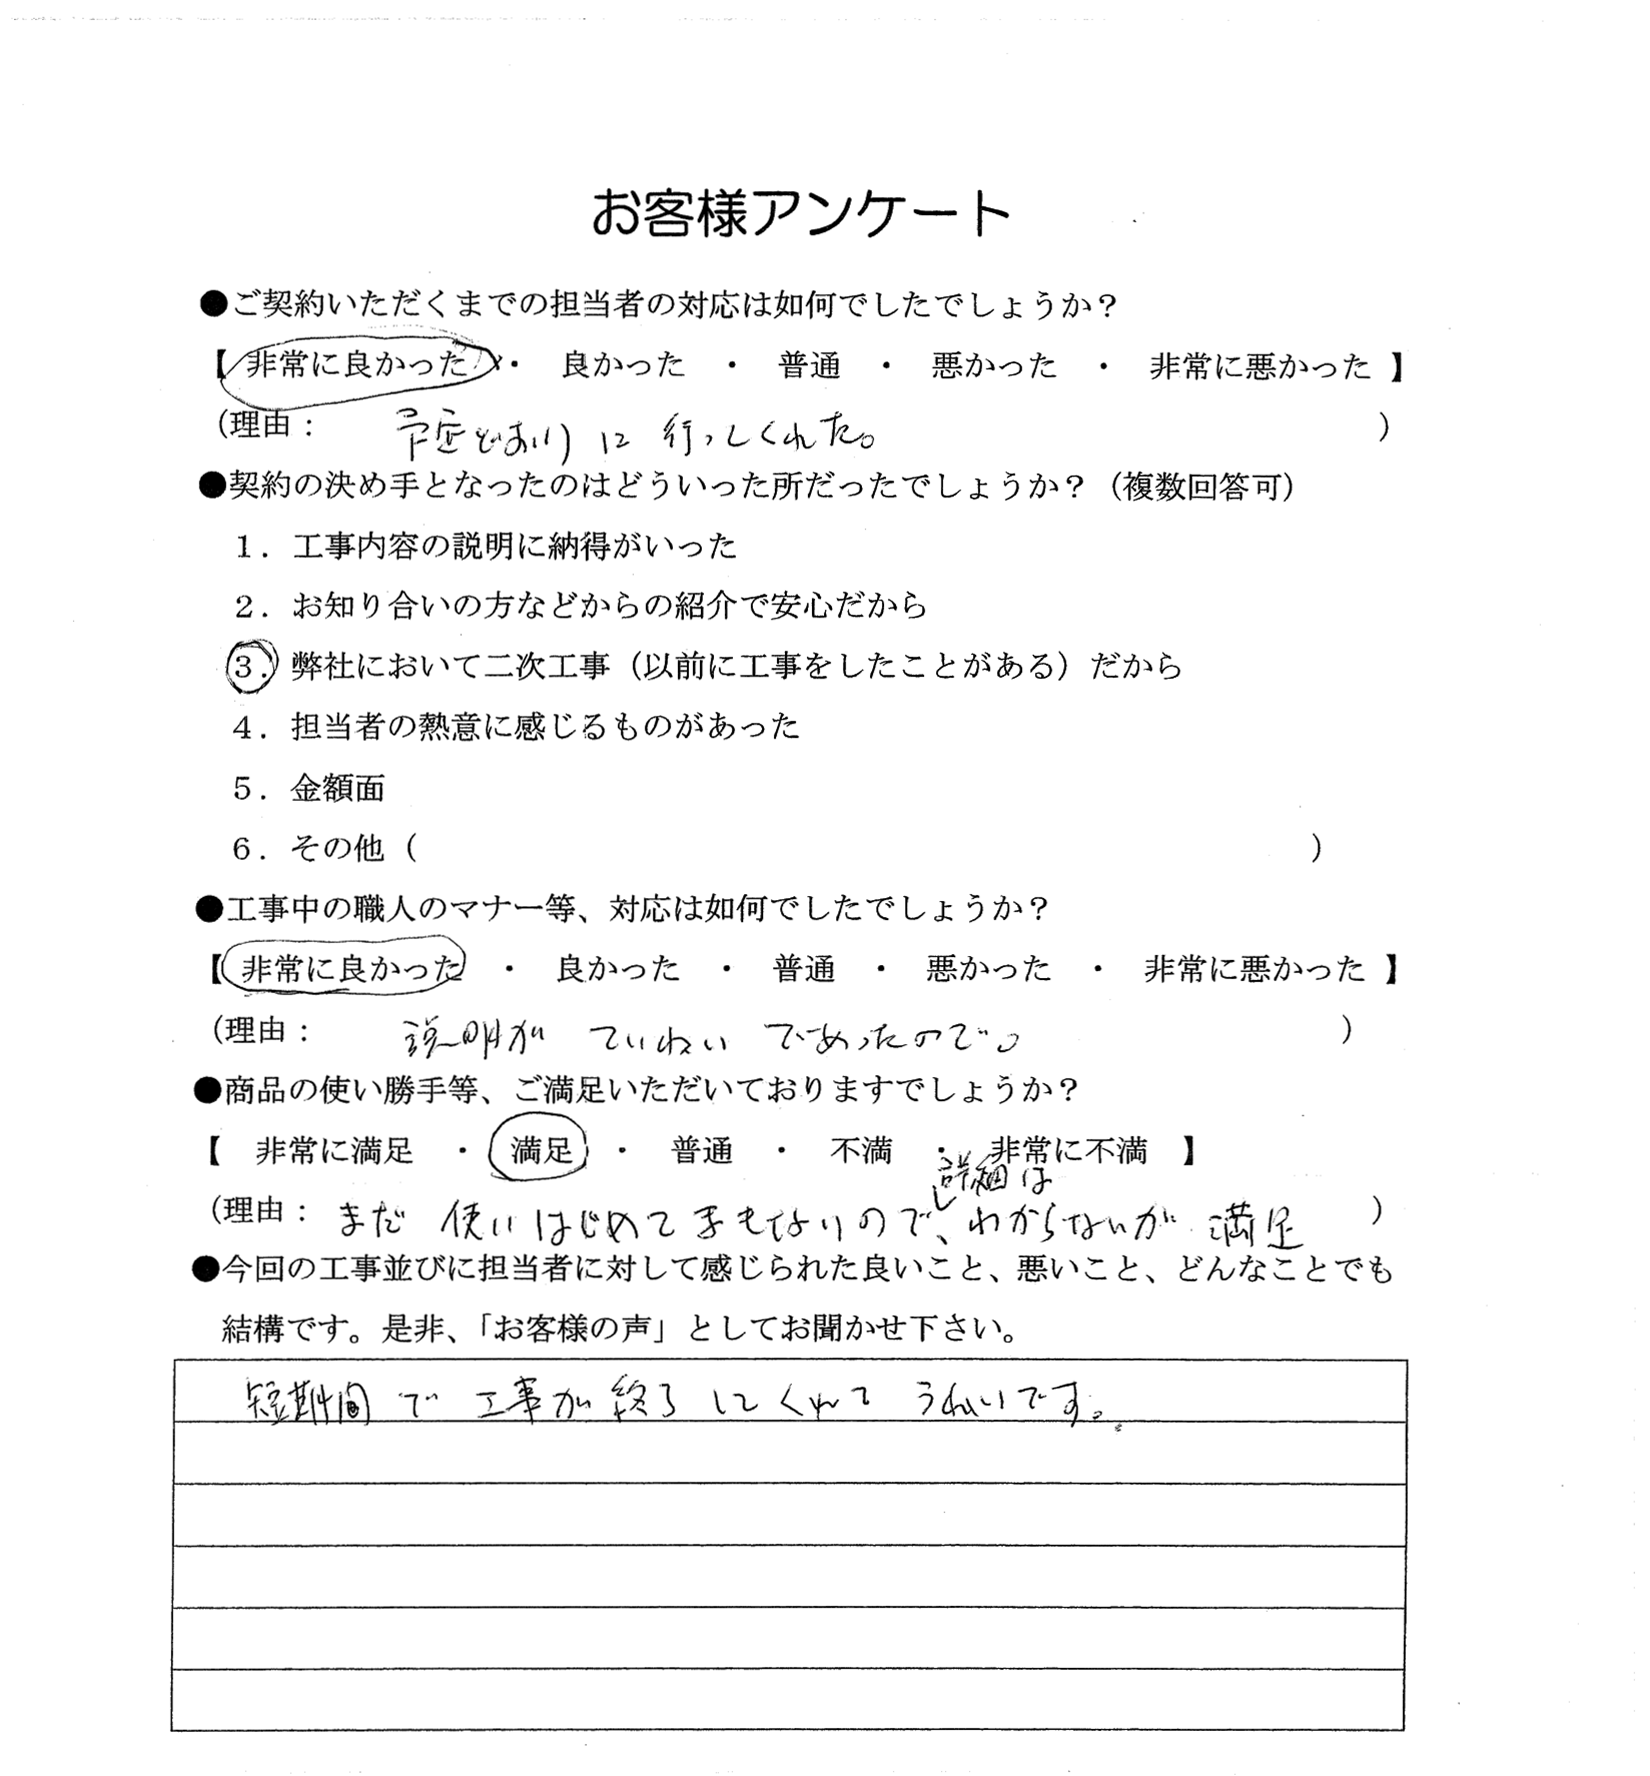 お客様アンケート
●ご契約いただくまでの担当者の対応は如何でしたでしょうか？
【 非常に良かった ・ 良かった ・ 普通 ・ 悪かった ・ 非常に悪かった 】
（理由： 予定どおりに行ってくれた。 ）
●契約の決め手となったのはどういった所だったでしょうか？（複数回答可）
１．工事内容の説明に納得がいった
２．お知り合いの方などからの紹介で安心だから
３．弊社において二次工事（以前に工事をしたことがある）だから
４．担当者の熱意に感じるものがあった
５．金額面
６．その他（ ）
●工事中の職人のマナー等、対応は如何でしたでしょうか？
【 非常に良かった ・ 良かった ・ 普通 ・ 悪かった ・ 非常に悪かった 】
（理由： 説明が ていねい であったので。 ）
●商品の使い勝手等、ご満足いただいておりますでしょうか？
【 非常に満足 ・ 満足 ・ 普通 ・ 不満 ・ 非常に不満 】
（理由：まだ 使いはじめてまもないので、詳細はわからないが 満足 ）
●今回の工事並びに担当者に対して感じられた良いこと、悪いこと、どんなことでも
結構です。是非、「お客様の声」としてお聞かせ下さい。
短期間で 工事が終了してくれて うれしいです。